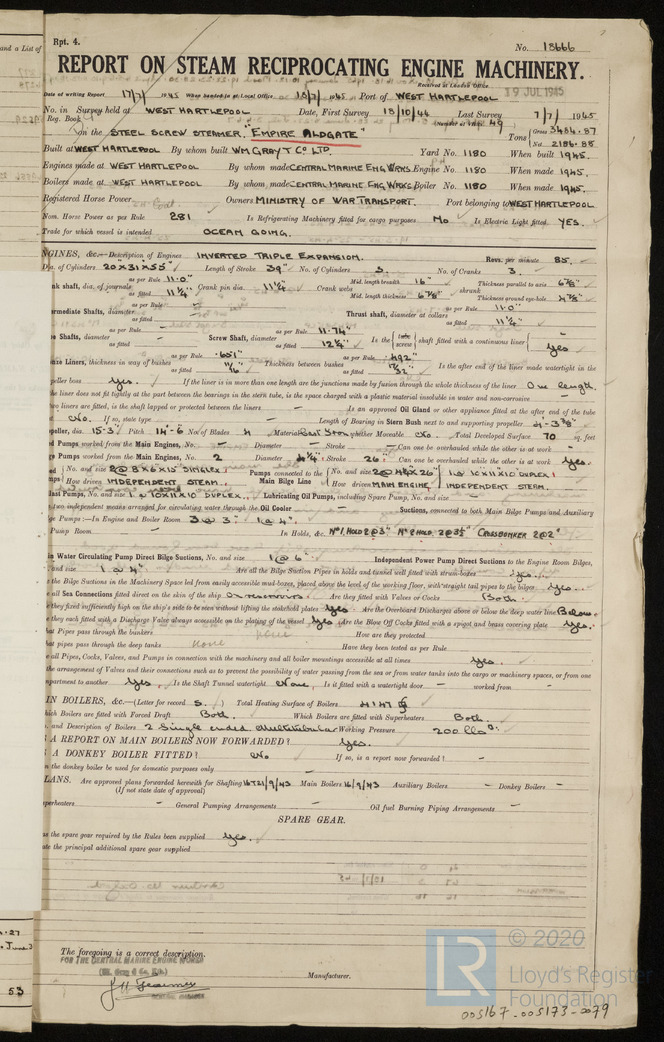 and a List of
Rpt. 4.
No. 13666
REPORT ON STEAM RECIPROCATING ENGINE MACHINERY.
Received at London Office
19 JUL 1945
Date of writing Report 17/7/ 1945 When handed in at Local Office 18/7/ 1945 Port of WEST HARTLEPOOL
No. in Survey held at WEST HARTLEPOOL Date, First Survey 13/10/44 Last Survey 7/7/ 1945
Reg. Book (Number of Visits 49)
on the STEEL SCREW STEAMER. "EMPIRE ALDGATE" Tons Gross 3484.87
Net 2186.88
Built at WEST HARTLEPOOL By whom built WM GRAY & CO LTD. Yard No. 1180 When built 1945.
Engines made at WEST HARTLEPOOL By whom made CENTRAL MARINE ENG. WRKS Engine No. 1180 When made 1945.
Boilers made at WEST HARTLEPOOL By whom made CENTRAL MARINE ENG. WRKS Boiler No. 1180 When made 1945.
Registered Horse Power Owners MINISTRY OF WAR TRANSPORT. Port belonging to WEST HARTLEPOOL
Nom. Horse Power as per Rule 281 Is Refrigerating Machinery fitted for cargo purposes No Is Electric Light fitted YES.
Trade for which vessel is intended OCEAN GOING.
NGINES, &c.—Description of Engines INVERTED TRIPLE EXPANSION. Revs. per minute 85.
Dia. of Cylinders 20"x31"x55" Length of Stroke 39" No. of Cylinders 3. No. of Cranks 3.
nk shaft, dia. of journals as per Rule 11.0" as fitted 11¼" Crank pin dia. 11¼" Crank webs Mid. length breadth 16" Mid. length thickness 6⅞" shrunk Thickness parallel to axis 6⅞" Thickness around eye-hole
ermediate Shafts, diameter as per Rule – as fitted – Thrust shaft, diameter at collars as per Rule 11.0" as fitted 11¼"
e Shafts, diameter as per Rule – as fitted – Screw Shaft, diameter as per Rule 11.74" as fitted 12¼" Is the tube screw shaft fitted with a continuous liner – Yes
nze Liners, thickness in way of bushes as per Rule .651" as fitted 11/16" Thickness between bushes as per Rule .492" as fitted 17/32" Is the after end of the liner made watertight in the
peller boss Yes. If the liner is in more than one length are the junctions made by fusion through the whole thickness of the liner One length.
he liner does not fit tightly at the part between the bearings in the stern tube, is the space charged with a plastic material insoluble in water and non-corrosive –
two liners are fitted, is the shaft lapped or protected between the liners – Is an approved Oil Gland or other appliance fitted at the after end of the tube
No. If so, state type – Length of Bearing in Stern Bush next to and supporting propeller 4'-3⅜"
peller, dia. 15'-3" Pitch 14'-6" No. of Blades 4 Material Cast Iron whether Moveable No. Total Developed Surface 70 sq. feet
ed Pumps worked from the Main Engines, No. – Diameter – Stroke – Can one be overhauled while the other is at work –
ge Pumps worked from the Main Engines, No. 2 Diameter 4¼" Stroke 26" Can one be overhauled while the other is at work Yes.
No. and size 2 @ 8"x6"x15" SIMPLEX Pumps connected to the No. and size 2 @ 4¼"x26" 1 @ 10"x11"x10" DUPLEX
How driven INDEPENDENT STEAM. Main Bilge Line How driven MAIN ENGINE INDEPENDENT STEAM.
ast Pumps, No. and size 1 @ 10"x11"x10" DUPLEX. Lubricating Oil Pumps, including Spare Pump, No. and size –
two independent means arranged for circulating water through the Oil Cooler – Suctions, connected to both Main Bilge Pumps and Auxiliary
ge Pumps:—In Engine and Boiler Room 3 @ 3" 1 @ 4".
Pump Room – In Holds, &c. Nº1 HOLD 2 @ 3" Nº2 HOLD 2 @ 3½" CROSSBUNKER 2 @ 2"
n Water Circulating Pump Direct Bilge Suctions, No. and size 1 @ 6" Independent Power Pump Direct Suctions to the Engine Room Bilges,
and size 1 @ 4". Are all the Bilge Suction Pipes in holds and tunnel well fitted with strum-boxes Yes.
the Bilge Suctions in the Machinery Space led from easily accessible mud-boxes, placed above the level of the working floor, with straight tail pipes to the bilges Yes.
all Sea Connections fitted direct on the skin of the ship Are they fitted with Valves or Cocks Both.
they fixed sufficiently high on the ship's side to be seen without lifting the stokehold plates Yes Are the Overboard Discharges above or below the deep water line Below
they each fitted with a Discharge Valve always accessible on the plating of the vessel Yes Are the Blow Off Cocks fitted with a spigot and brass covering plate Yes.
hat Pipes pass through the bunkers none How are they protected
hat pipes pass through the deep tanks none Have they been tested as per Rule
all Pipes, Cocks, Valves, and Pumps in connection with the machinery and all boiler mountings accessible at all times Yes.
the arrangement of Valves and their connections such as to prevent the possibility of water passing from the sea or from water tanks into the cargo or machinery spaces, or from one
partment to another Yes. Is the Shaft Tunnel watertight None. Is it fitted with a watertight door – worked from –
IN BOILERS, &c.—(Letter for record S.) Total Heating Surface of Boilers 4147
hich Boilers are fitted with Forced Draft Both. Which Boilers are fitted with Superheaters Both.
and Description of Boilers 2 Single ended Multitubular Working Pressure 200 lbs
A REPORT ON MAIN BOILERS NOW FORWARDED? Yes.
A DONKEY BOILER FITTED? No If so, is a report now forwarded? –
the donkey boiler be used for domestic purposes only –
LANS. Are approved plans forwarded herewith for Shafting 16 & 21/9/43 Main Boilers 16/9/43 Auxiliary Boilers – Donkey Boilers –
(If not state date of approval)
perheaters – General Pumping Arrangements – Oil fuel Burning Piping Arrangements –
SPARE GEAR.
s the spare gear required by the Rules been supplied Yes.
ate the principal additional spare gear supplied
The foregoing is a correct description.
FOR THE CENTRAL MARINE ENGINE WORKS
(Wm. Gray & Co. Ltd.)
GENERAL MANAGER
Manufacturer.
53
© 2020
LR
Lloyd's Register
Foundation
005167-005173-0079